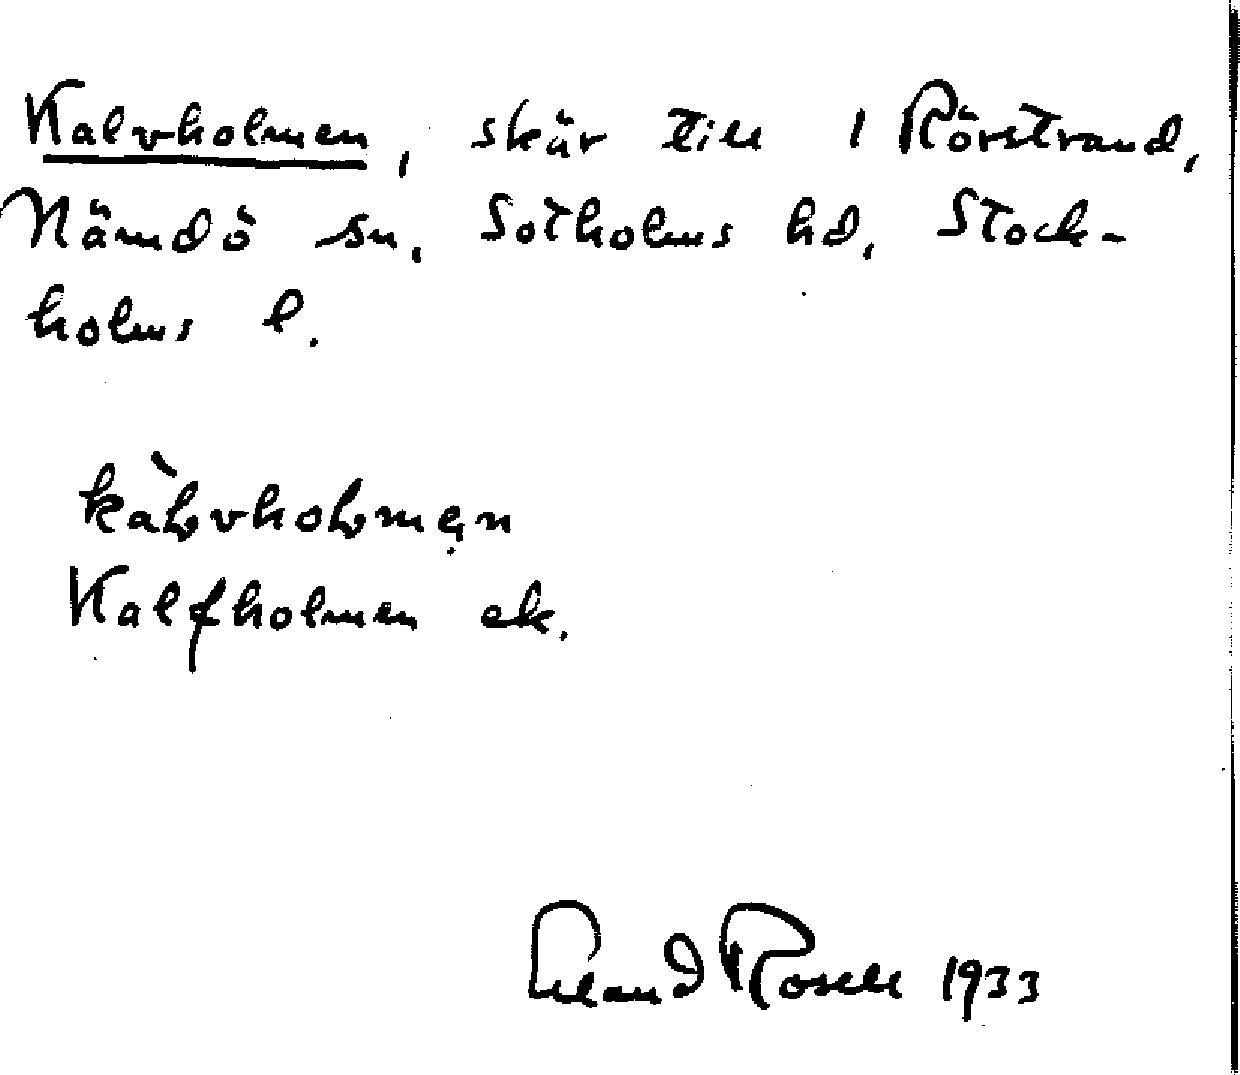 Kalvholmen, skär till 1 Rörstrand,
Nämdö sn, Sotholms hd, Stock-
holms l.
kàlvholmẹn
Kalfholmen ek.
Erland Rosell 1933